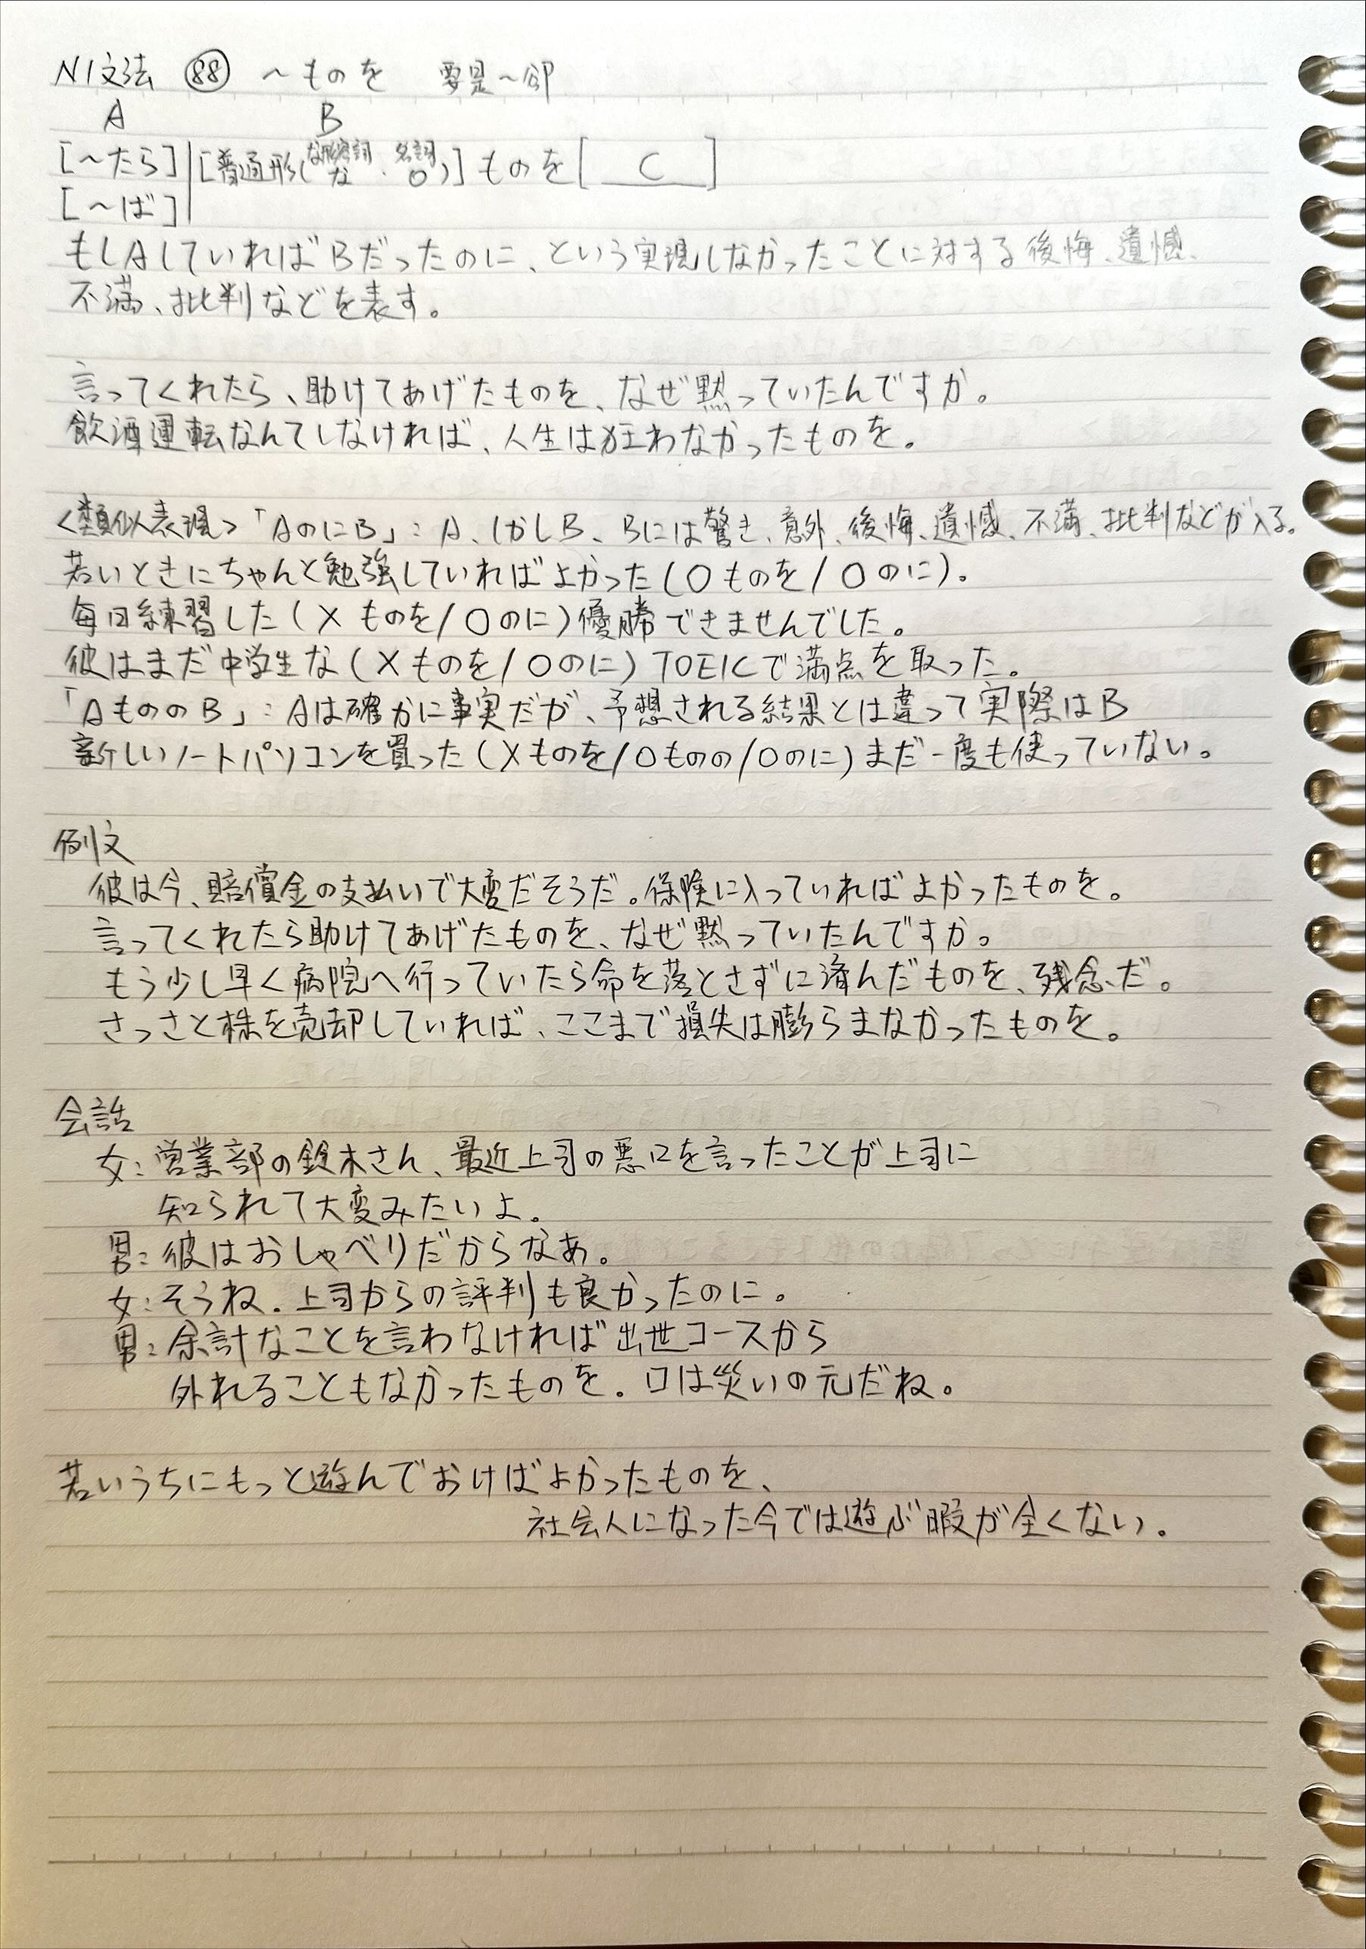 N1文法 88 ～ものを 要是～卻
A B
[～たら] [普通形(な形容詞な・名詞○)] ものを [ C ]
[～ば]
もしAしていればBだったのに、という実現しなかったことに対する後悔、遺憾、
不満、批判などを表す。
言ってくれたら、助けてあげたものを、なぜ黙っていたんですか。
飲酒運転なんてしなければ、人生は狂わなかったものを。
<類似表現>「AのにB」:A、しかしB、Bには驚き、意外、後悔、遺憾、不満、批判などが入る。
若いときにちゃんと勉強していればよかった(○ものを/○のに)。
毎日練習した(×ものを/○のに)優勝できませんでした。
彼はまだ中学生な(×ものを/○のに)TOEICで満点を取った。
「AもののB」:Aは確かに事実だが、予想される結果とは違って実際はB
新しいノートパソコンを買った(×ものを/○ものの/○のに)まだ一度も使っていない。
例文
彼は今、賠償金の支払いで大変だそうだ。保険に入っていればよかったものを。
言ってくれたら助けてあげたものを、なぜ黙っていたんですか。
もう少し早く病院へ行っていたら命を落とさずに済んだものを、残念だ。
さっさと株を売却していれば、ここまで損失は膨らまなかったものを。
会話
女:営業部の鈴木さん、最近上司の悪口を言ったことが上司に
知られて大変みたいよ。
男:彼はおしゃべりだからなあ。
女:そうね。上司からの評判も良かったのに。
男:余計なことを言わなければ出世コースから
外れることもなかったものを。口は災いの元だね。
若いうちにもっと遊んでおけばよかったものを、
社会人になった今では遊ぶ暇が全くない。